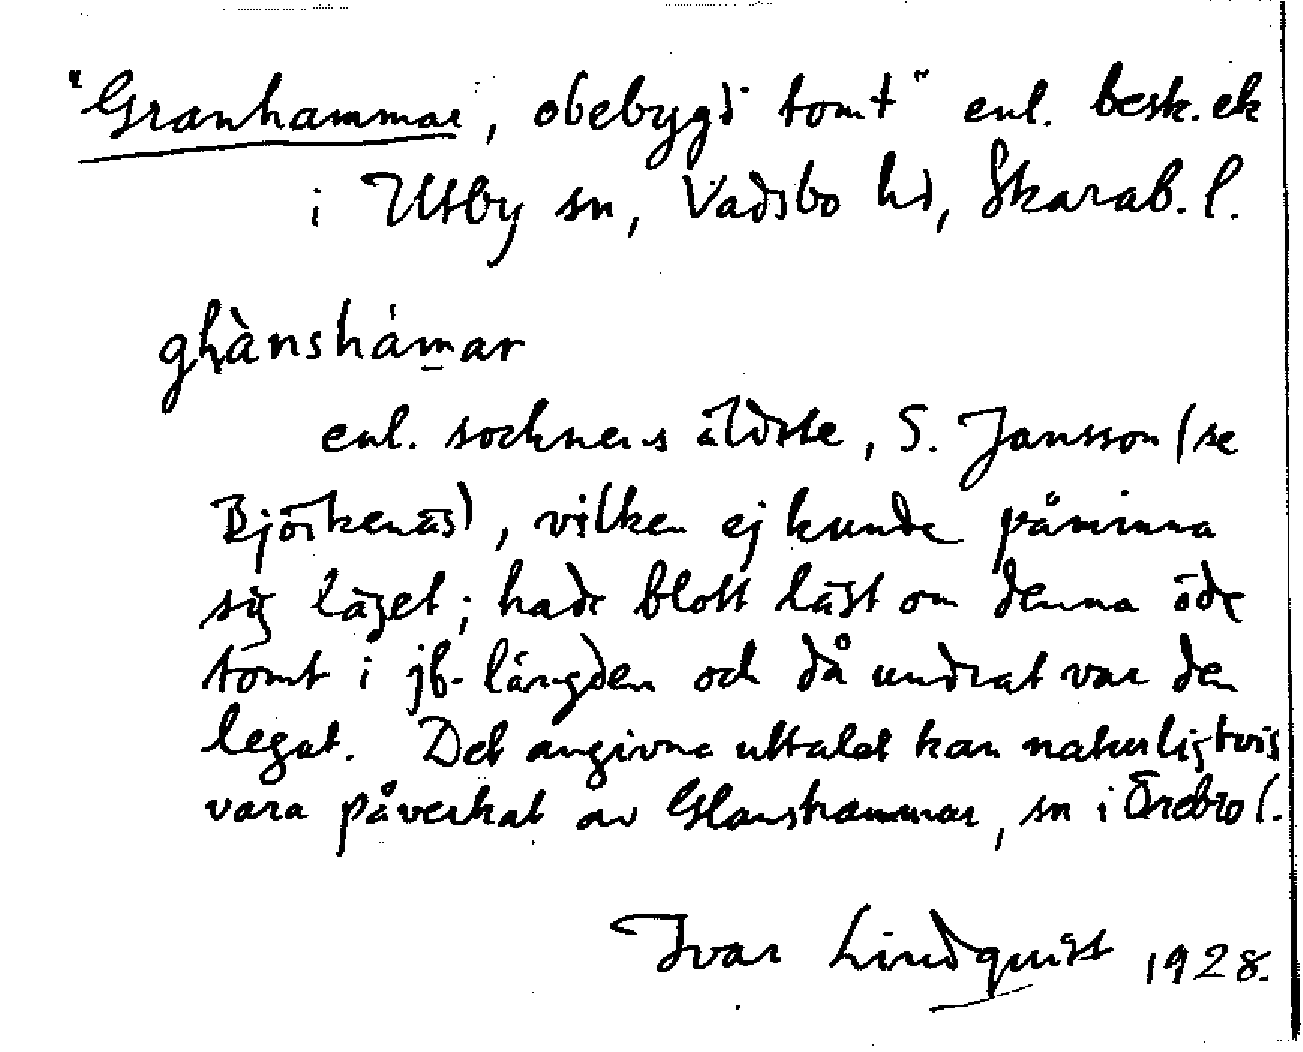 "Granhammar, obebygd tomt" enl. besk. ek
i Utby sn, Vadsbo hd, Skarab. l.
glànshámar
enl. socknens äldste, S. Jansson (se
Björkenäs), vilken ej kunde påminna
sig läget; hade blott läst om denna öde
tomt i jb-längden och då undrat var den
legat. Det angivna uttalet kan naturligtvis
vara påverkat av Glanshammar, sn i Örebro l.
Ivar Lindquist 1928.